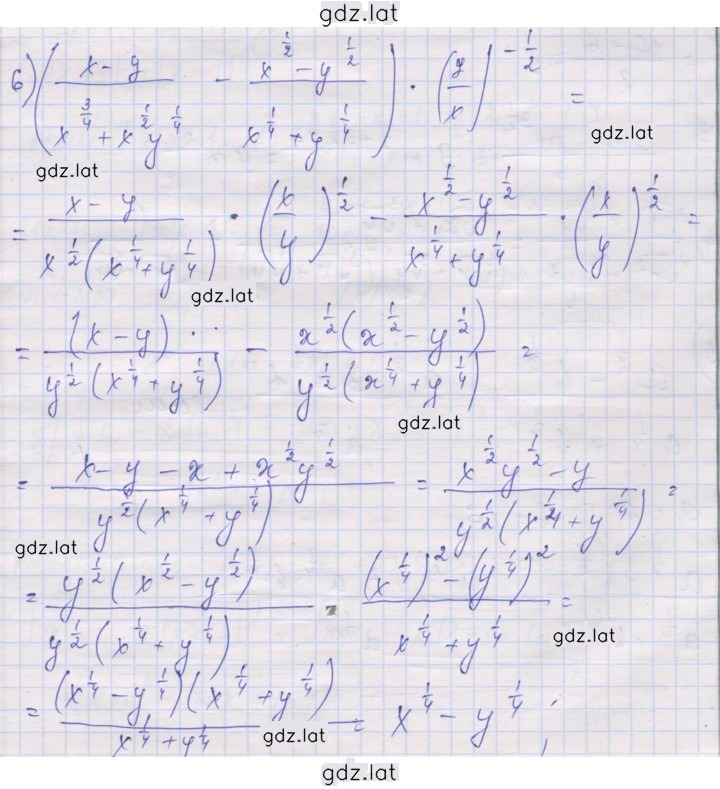 gdz.lat
б) ((x - y)/(x^(3/4) + x^(1/2)y^(1/4)) - (x^(1/2) - y^(1/2))/(x^(1/4) + y^(1/4))) · (y/x)^(-1/2) =
gdz.lat gdz.lat
= (x - y)/(x^(1/2)(x^(1/4) + y^(1/4))) · (x/y)^(1/2) - (x^(1/2) - y^(1/2))/(x^(1/4) + y^(1/4)) · (x/y)^(1/2) =
gdz.lat
= (x - y)/(y^(1/2)(x^(1/4) + y^(1/4))) - x^(1/2)(x^(1/2) - y^(1/2))/(y^(1/2)(x^(1/4) + y^(1/4))) =
gdz.lat
= (x - y - x + x^(1/2)y^(1/2))/(y^(1/2)(x^(1/4) + y^(1/4))) = (x^(1/2)y^(1/2) - y)/(y^(1/2)(x^(1/4) + y^(1/4))) =
gdz.lat
= y^(1/2)(x^(1/2) - y^(1/2))/(y^(1/2)(x^(1/4) + y^(1/4))) = ((x^(1/4))^2 - (y^(1/4))^2)/(x^(1/4) + y^(1/4)) =
gdz.lat
= (x^(1/4) - y^(1/4))(x^(1/4) + y^(1/4))/(x^(1/4) + y^(1/4)) = x^(1/4) - y^(1/4);
gdz.lat
gdz.lat